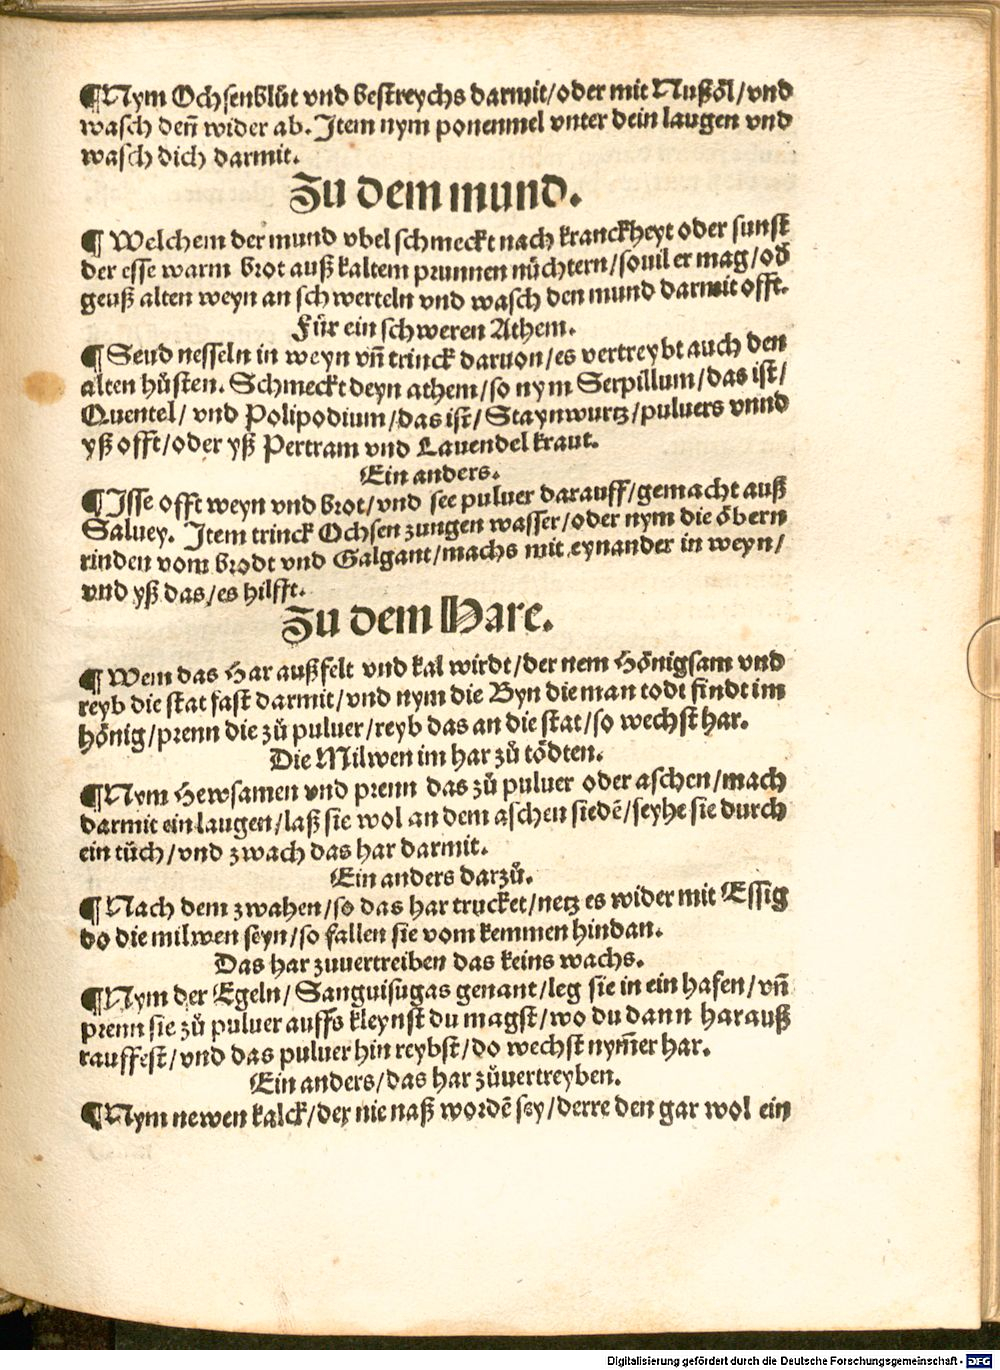 ¶Nym Ochsenblůt vnd bestreychs darmit/oder mit Nußöl/vnd
wasch deñ wider ab. Item nym ponenmel vnter dein laugen vnd
wasch dich darmit.
Zu dem mund.
¶ Welchem der mund vbel schmeckt nach kranckheyt oder sunst
der esse warm brot auß kaltem prunnen nüchtern/souil er mag/od̃
geuß alten weyn an schwerteln vnd wasch den mund darmit offt.
Für ein schweren Athem.
¶ Seud nesseln in weyn vñ trinck daruon/es vertreybt auch den
alten hůsten. Schmeckt deyn athem/so nym Serpillum/das ist/
Quentel/ vnd Polipodium/das ist/ Staynwurtz/puluers vnnd
yß offt/oder yß Pertram vnd Lauendel kraut.
Ein anders.
¶ Isse offt weyn vnd brot/vnd see puluer darauff/gemacht auß
Saluey. Item trinck Ochsen zungen wasser/oder nym die öbern
rinden vom brodt vnd Galgant/machs mit eynander in weyn/
vnd yß das/es hilfft.
Zu dem Hare.
¶ Wem das Har außfelt vnd kal wirdt/der nem Hönigsam vnd
reyb die stat fast darmit/vnd nym die Byn die man todt findt im
hönig/prenn die zů puluer/reyb das an die stat/so wechst har.
Die Milwen im har zů tödten.
¶Nym Hewsamen vnd prenn das zů puluer oder aschen/mach
darmit ein laugen/laß sie wol an dem aschen siedẽ/seyhe sie durch
ein tüch/vnd zwach das har darmit.
Ein anders darzů.
¶ Nach dem zwahen/so das har trucket/netz es wider mit Essig
do die milwen seyn/so fallen sie vom kemmen hindan.
Das har zuuertreiben das keins wachs.
¶Nym der Egeln/ Sanguisugas genant/leg sie in ein hafen/vñ
prenn sie zů puluer auffs kleynst du magst/wo du dann har auß
rauffest/vnd das puluer hin reybst/do wechst nym̃er har.
Ein anders/das har zůuertreyben.
¶Nym newen kalck/der nie naß wordẽ sey/derre den gar wol ein
Digitalisierung gefördert durch die Deutsche Forschungsgemeinschaft - DFG